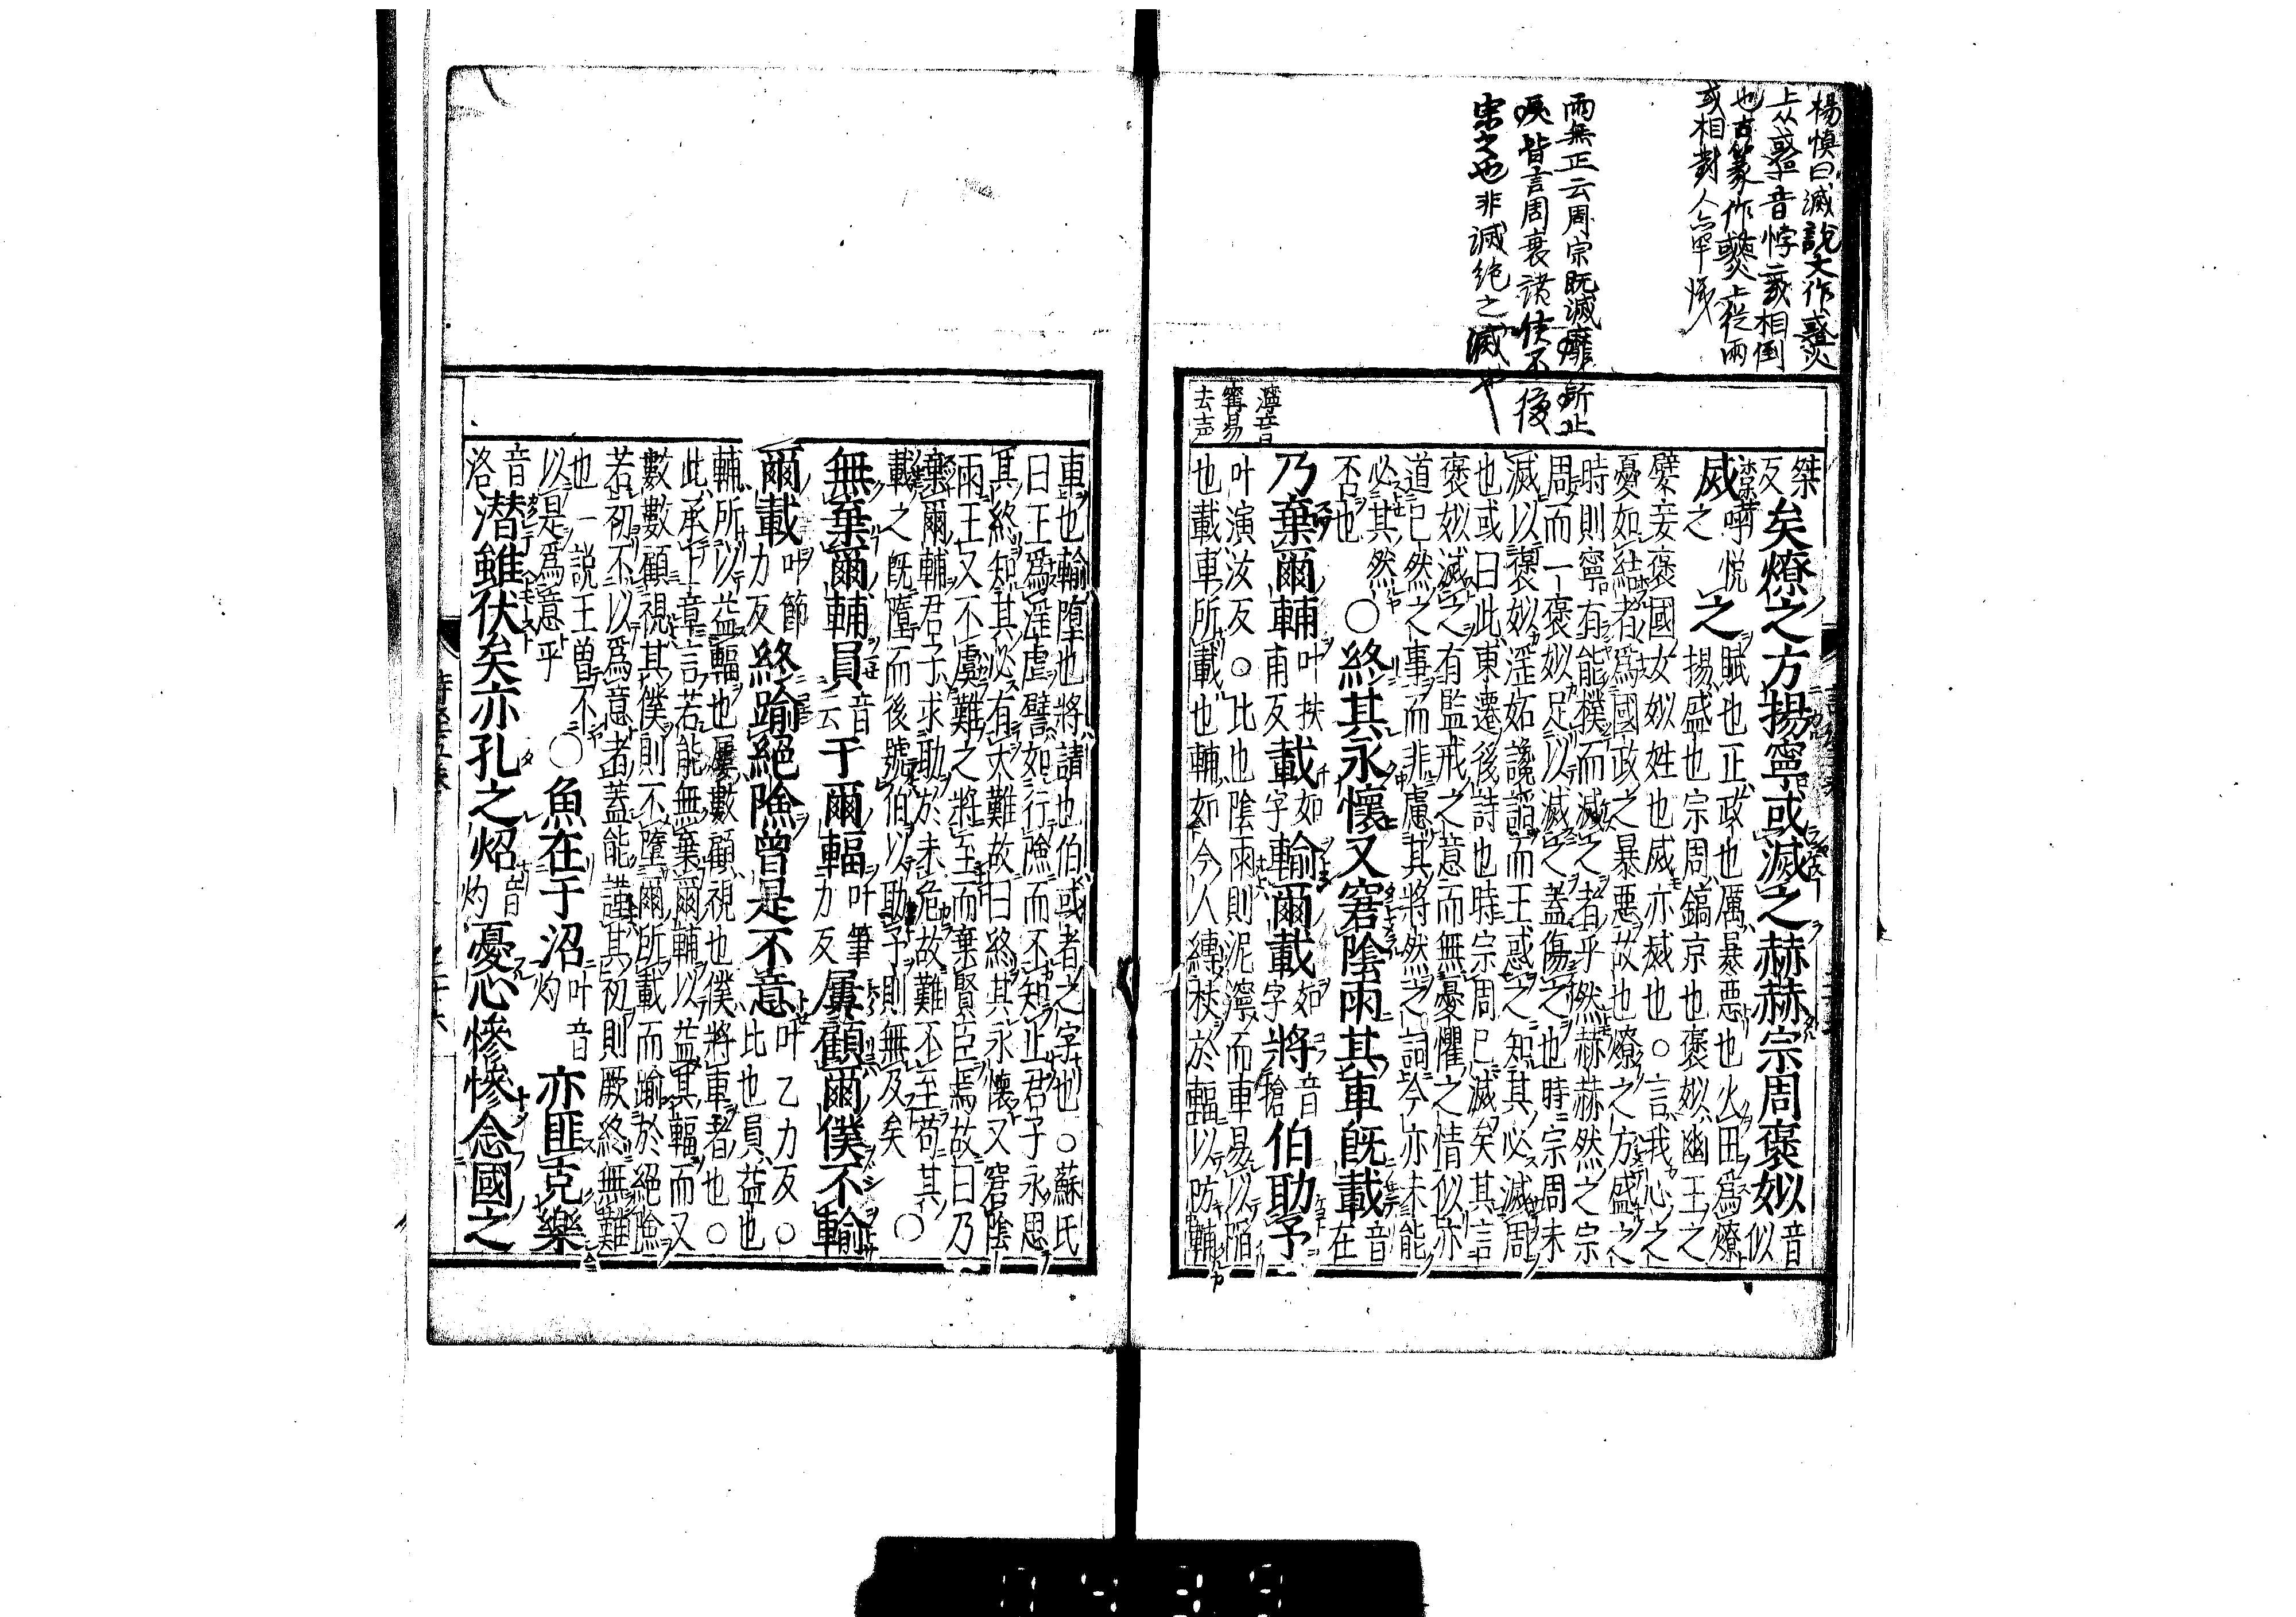 楊慎曰滅說文作
音悖二或相倒
也古篆作上從兩
或相對人
雨無正云周宗既滅靡所止
戾皆言周衰諸侯不復
宗之也非滅絶之滅也
濘音
甯易
去声
桀
反
矣燎之方揚寧或滅之赫赫宗周褒姒
音
似
烕
呼悅
之
賦也正政也厲暴惡也火田爲燎
揚盛也宗周鎬京也褒姒幽王之
嬖妾褒國女姒姓也烕亦滅也○言我心之
憂如結者爲國政之暴惡故也燎之方盛之
時則寧有能撲而滅之者乎然赫赫然之宗
周而一褒姒足以滅之蓋傷之也時宗周未
滅以褒姒淫妬讒諂而王惑之知其必滅周
也或曰此東遷後詩也時宗周已滅矣其言
褒姒滅之有監戒之意而無憂懼之情似亦
道已然之事而非慮其將然之詞今亦未能
必其然
否也
○終其永懷又窘陰雨其車旣載
音
在
乃棄爾輔
叶扶
甫反
載
如
字
輸爾載
如
字
將
音
槍
伯助予
叶演汝反○比也陰雨則泥濘而車易以陷
也載車所載也輔如今人縛杖於輻以防輔
車也輸墮也將請也伯或者之字也○蘇氏
曰王爲淫虐譬如行險而不知止君子永思
其終知其必有大難故曰終其永懷又窘陰
雨王又不虞難之將至而棄賢臣焉故曰乃
棄爾輔君子求助於未危故難不至苟其
載之旣墮而後號伯以助予則無及矣
○
無棄爾輔員
音
云
于爾輻
叶筆
力反
屢顧爾僕不輸
爾載
叶節
力反
終踰絕險曾是不意
叶乙力反○
比也員益也
輔所以益輻也屢數顧視也僕將車者也○
此承上章言若能無棄爾輔以益其輻而又
數數顧視其僕則不墮爾所載而踰於絕險
若初不以爲意者蓋能謹其初則厥終無難
也一說王曾不
以是爲意乎
○魚在于沼
叶音
灼
亦匪克樂
音
洛
潛雖伏矣亦孔之炤
音
灼
憂心慘慘念國之